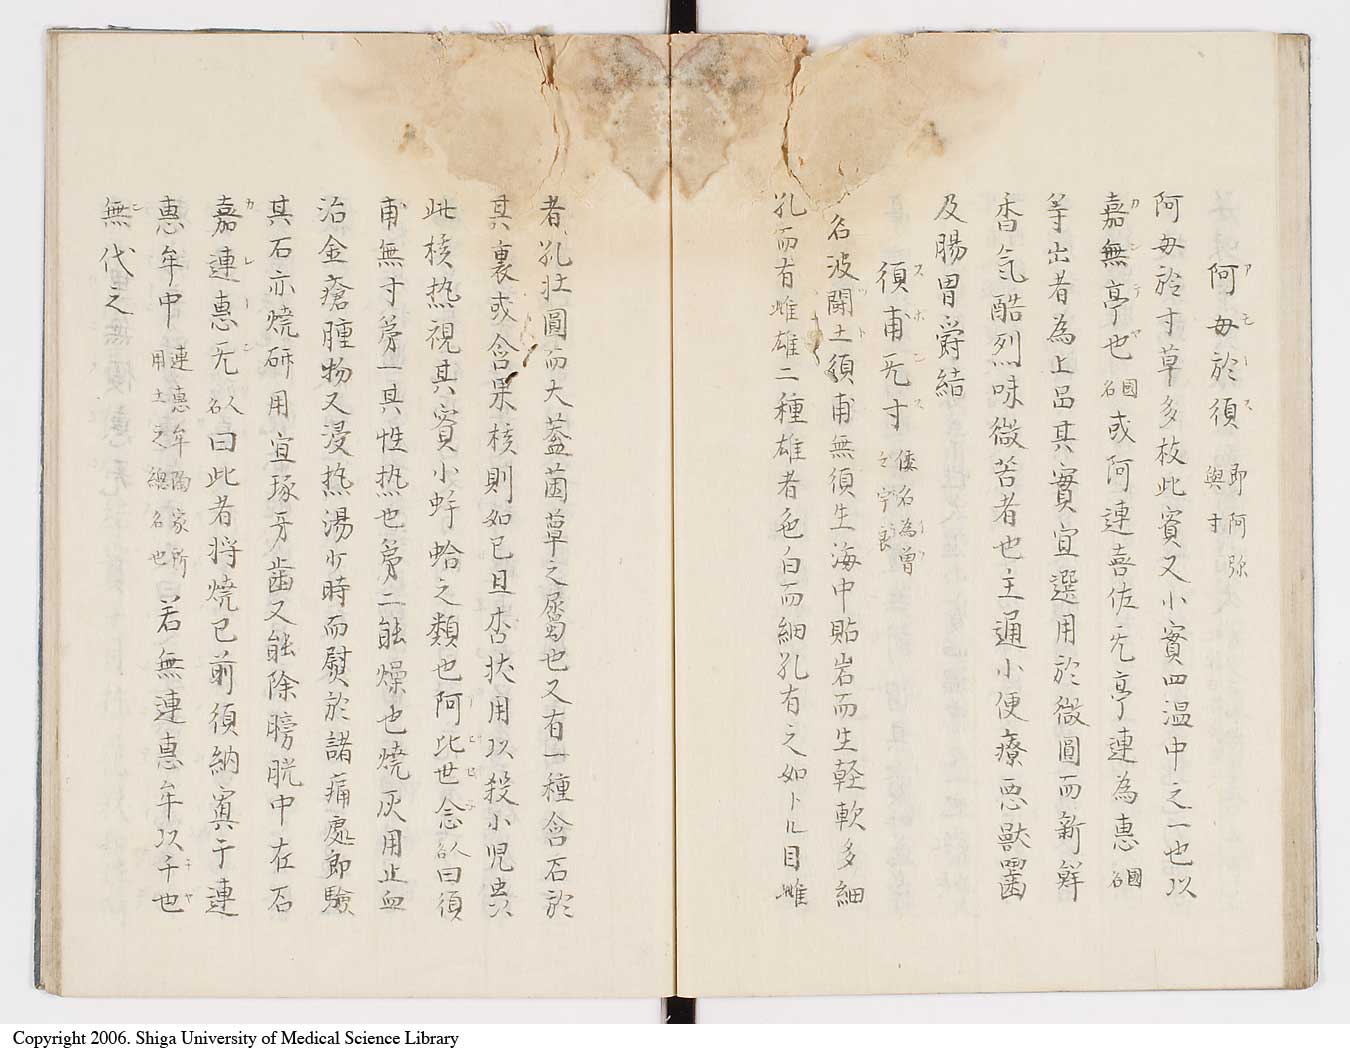 阿毋於須 即阿弥與寸
阿毋於寸草多枝此賔又小實四温中之一也以
嘉無亭也國名或阿連喜佐旡亭連為惠國名
等出者為上品其實宜選用於微圓而新鮮
香氣酷烈味微苦者也主通小便療悪獣囓
及腸胃欝結
須甫旡寸 倭名為曽
名波開土須甫無須生海中貼岩而生軽軟多細
孔而有雌雄二種雄者色白而細孔有之如トル目雌
者孔壮圓而大蓋菌蕈之属也又有一種含石於
其裏或含果核則如巳旦杏状用以殺小児虫
此核熱視其賔小蚌蛤之類也阿比世念人名曰須
甫無寸第一其性热也第二能燥也焼灰用止血
治金瘡腫物又浸热湯少時而熨於諸痛處即驗
其石亦焼研用宜琢牙歯又能除膀胱中在石
嘉連惠旡人名曰此者将焼已前須納寘于連
惠牟中 連惠牟陶家所用土之總名也 若無連惠牟以千也
無代之
Copyright 2006. Shiga University of Medical Science Library